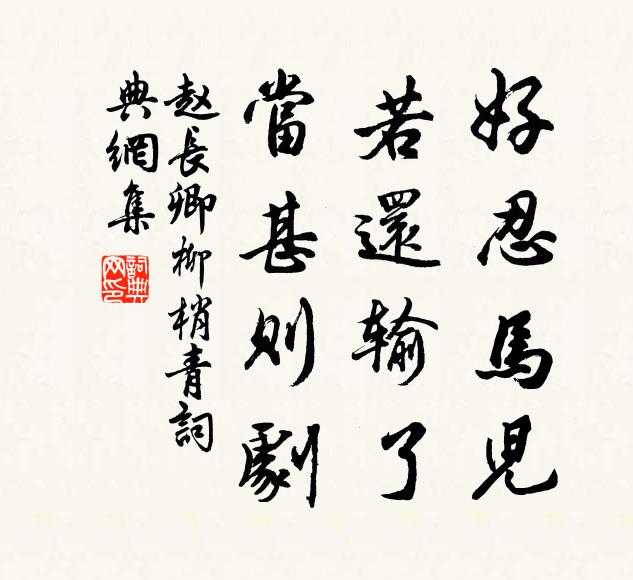 好忍馬児
若還输了
當甚則劇
赵長卿柳梢青詞
典網集
詞典网印